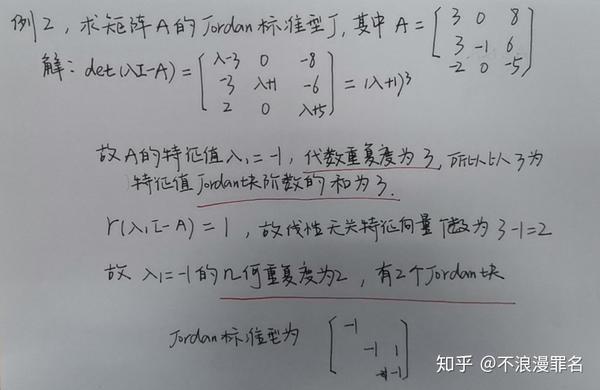 例2，求矩阵A的Jordan标准型J，其中 A = [3 0 8
3 -1 6
-2 0 -5]
解：det(λI-A) = [λ-3 0 -8
-3 λ+1 -6
2 0 λ+5] = (λ+1)³
故A的特征值λ₁=-1，代数重复度为3，所以以λ为
特征值Jordan块阶数的和为3.
r(λ₁I-A)=1，故线性无关特征向量个数为 3-1=2
故 λ₁=-1的几何重复度为2，有2个Jordan块
Jordan标准型为 [-1
-1 1
-1]
知乎 @不浪漫罪名